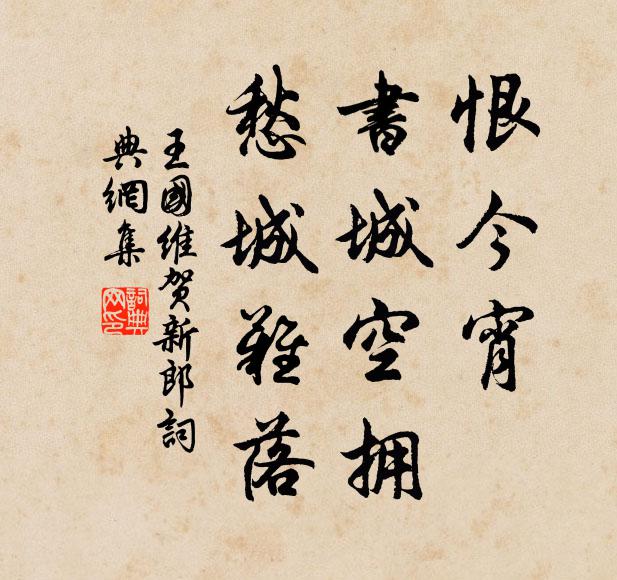 恨今宵
書城空拥
愁城難落
王國維賀新郎詞
典網集
詞典
网印